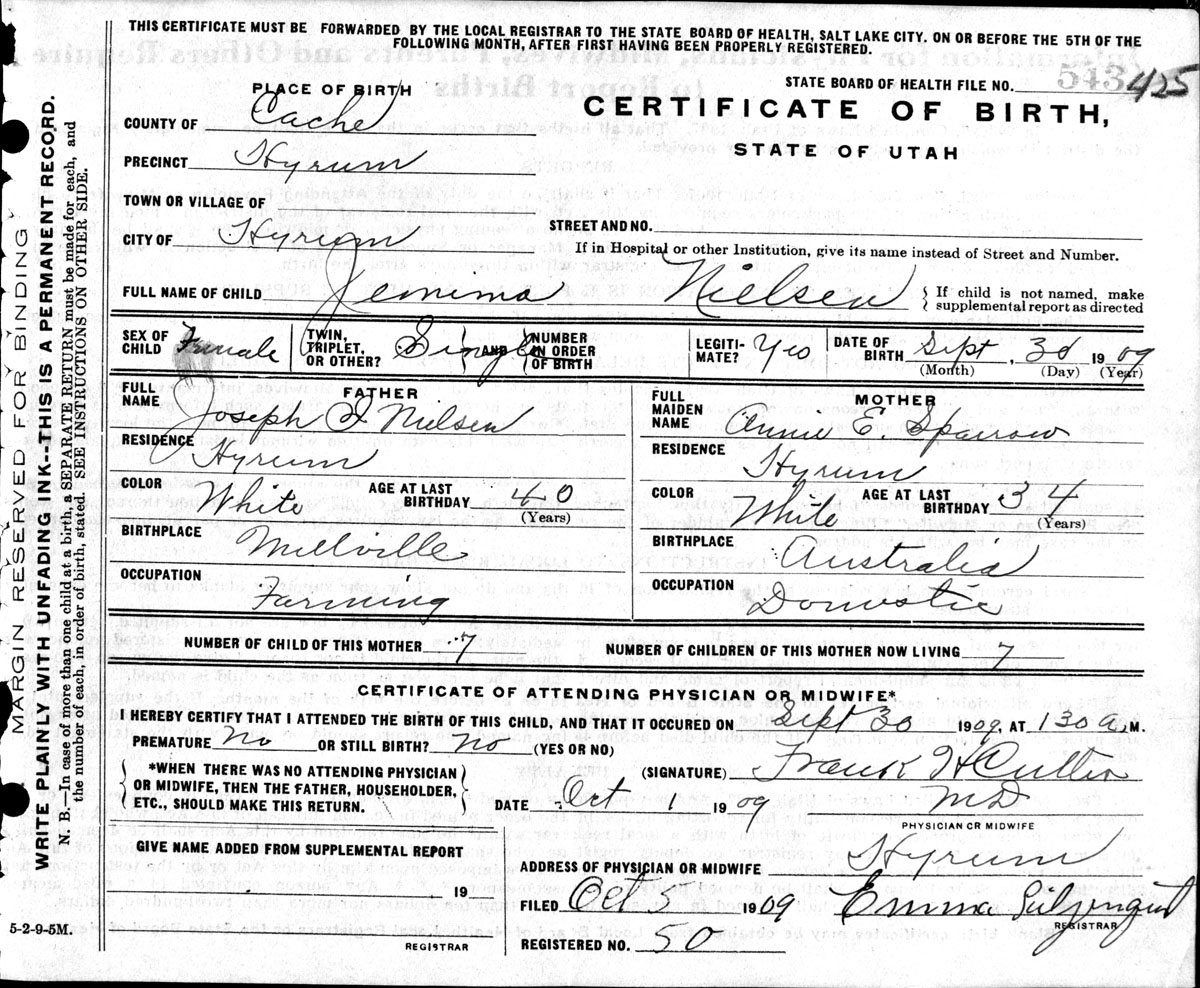 THIS CERTIFICATE MUST BE FORWARDED BY THE LOCAL REGISTRAR TO THE STATE BOARD OF HEALTH, SALT LAKE CITY. ON OR BEFORE THE 5TH OF THE
FOLLOWING MONTH, AFTER FIRST HAVING BEEN PROPERLY REGISTERED.
STATE BOARD OF HEALTH FILE NO. 425
543
PLACE OF BIRTH
CERTIFICATE OF BIRTH,
STATE OF UTAH
COUNTY OF Cache
PRECINCT Hyrum
TOWN OR VILLAGE OF
STREET AND NO.
CITY OF Hyrum
If in Hospital or other Institution, give its name instead of Street and Number.
FULL NAME OF CHILD Jemima Nielsen
If child is not named, make
supplemental report as directed
SEX OF CHILD Female
TWIN, TRIPLET, OR OTHER? Single AND NUMBER IN ORDER OF BIRTH
LEGITIMATE? Yes
DATE OF BIRTH Sept, 30 1909
(Month) (Day) (Year)
FATHER
FULL NAME Joseph I Nielsen
RESIDENCE Hyrum
COLOR White AGE AT LAST BIRTHDAY 40
(Years)
BIRTHPLACE Millville
OCCUPATION Farming
MOTHER
FULL MAIDEN NAME Annie E. Sparrow
RESIDENCE Hyrum
COLOR White AGE AT LAST BIRTHDAY 34
(Years)
BIRTHPLACE Australia
OCCUPATION Domestic
NUMBER OF CHILD OF THIS MOTHER 7 NUMBER OF CHILDREN OF THIS MOTHER NOW LIVING 7
CERTIFICATE OF ATTENDING PHYSICIAN OR MIDWIFE*
I HEREBY CERTIFY THAT I ATTENDED THE BIRTH OF THIS CHILD, AND THAT IT OCCURED ON Sept 30 1909, AT 130 a M.
PREMATURE No OR STILL BIRTH? No (YES OR NO)
*WHEN THERE WAS NO ATTENDING PHYSICIAN
OR MIDWIFE, THEN THE FATHER, HOUSEHOLDER,
ETC., SHOULD MAKE THIS RETURN.
(SIGNATURE) Frank H Cutler
MD
DATE Oct 1 1909
PHYSICIAN OR MIDWIFE
GIVE NAME ADDED FROM SUPPLEMENTAL REPORT
19
REGISTRAR
ADDRESS OF PHYSICIAN OR MIDWIFE Hyrum
FILED Oct 5 1909 Emma Liljenquist
REGISTRAR
REGISTERED NO. 50
5-2-9-5M.
MARGIN RESERVED FOR BINDING
WRITE PLAINTY WITH UNFADING INK--THIS IS A PERMANENT RECORD.
N. B.—In case of more than one child at a birth, a SEPARATE RETURN must be made for each, and
the number of each, in order of birth, stated. SEE INSTRUCTIONS ON OTHER SIDE.